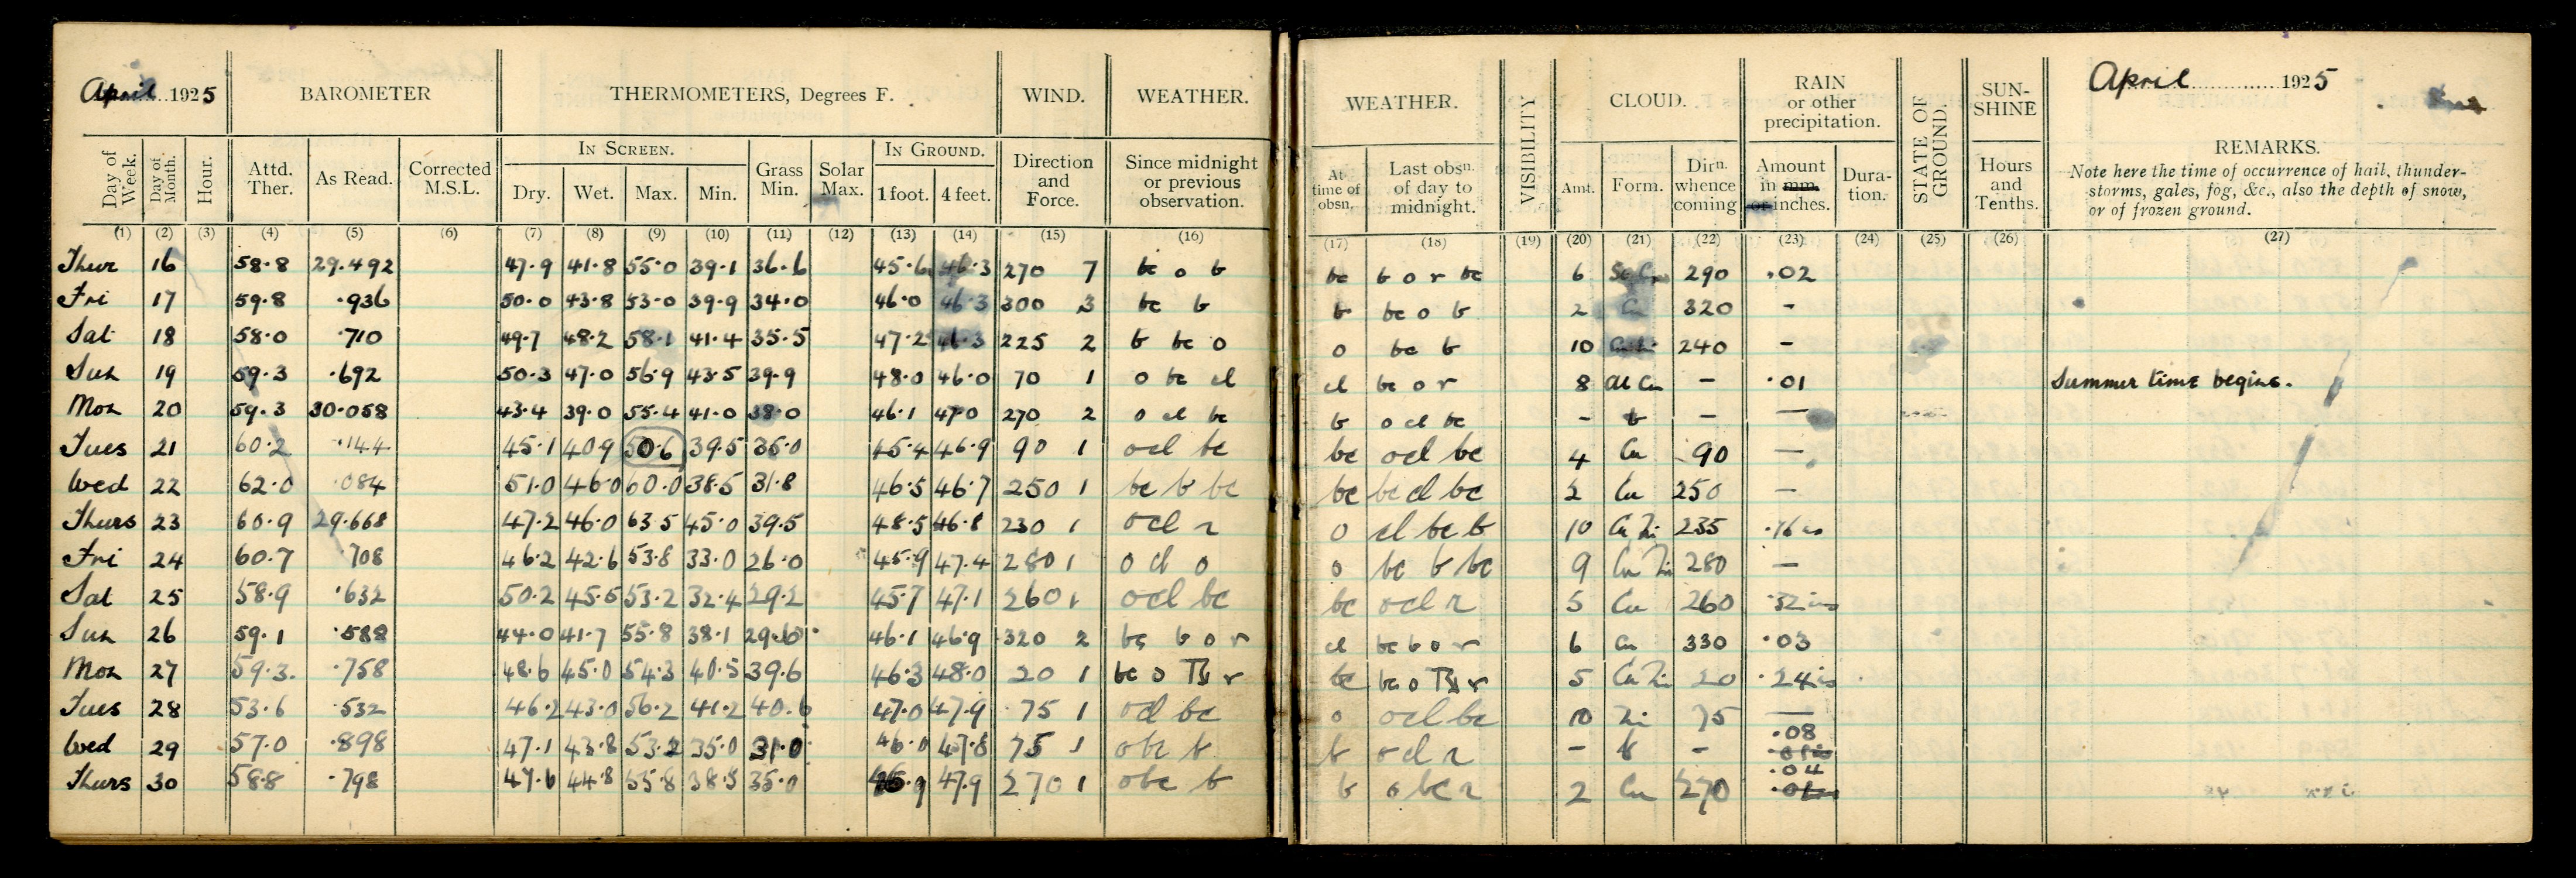 April 1925
BAROMETER
THERMOMETERS, Degrees F.
WIND.
WEATHER.
Day of Week.
Day of Month.
Hour.
Attd. Ther.
As Read.
Corrected M.S.L.
IN SCREEN.
Dry.
Wet.
Max.
Min.
Grass Min.
Solar Max.
IN GROUND.
1 foot.
4 feet.
Direction and Force.
Since midnight or previous observation.
(1) (2) (3) (4) (5) (6) (7) (8) (9) (10) (11) (12) (13) (14) (15) (16)
Thur 16 58.8 29.492 47.9 41.8 55.0 39.1 36.6 45.6 46.3 270 7 bc o b
Fri 17 59.8 .936 50.0 43.8 53.0 39.9 34.0 46.0 46.3 300 3 bc b
Sat 18 58.0 .710 49.7 48.2 58.1 41.4 35.5 47.2 46.3 225 2 b bc o
Sun 19 59.3 .692 50.3 47.0 56.9 43.5 39.9 48.0 46.0 70 1 o bc cl
Mon 20 59.3 30.058 43.4 39.0 55.4 41.0 38.0 46.1 47.0 270 2 o cl bc
Tues 21 60.2 .144 45.1 40.9 50.6 39.5 35.0 45.4 46.9 90 1 ocl bc
Wed 22 62.0 .084 51.0 46.0 60.0 38.5 31.8 46.5 46.7 250 1 bc b bc
Thurs 23 60.9 29.668 47.2 46.0 63.5 45.0 39.5 48.5 46.8 230 1 ocl r
Fri 24 60.7 .708 46.2 42.6 53.8 33.0 26.0 45.9 47.4 280 1 o cl o
Sat 25 58.9 .632 50.2 45.6 53.2 32.4 29.2 45.7 47.1 260 1 ocl bc
Sun 26 59.1 .588 44.0 41.7 55.8 38.1 29.0 46.1 46.9 320 2 bc b o r
Mon 27 59.3 .758 48.6 45.0 54.3 40.5 39.6 46.3 48.0 20 1 bc o r
Tues 28 53.6 .532 46.2 43.0 56.2 41.2 40.6 47.0 47.9 75 1 ocl bc
Wed 29 57.0 .898 47.1 43.8 53.2 35.0 31.0 46.0 47.8 75 1 obc b
Thurs 30 58.8 .798 47.6 44.8 55.8 38.5 35.0 .9 47.9 270 1 obc b
WEATHER.
VISIBILITY
CLOUD.
RAIN or other precipitation.
STATE OF GROUND.
SUN-SHINE
April 1925
At time of obsn.
Last obsn. of day to midnight.
Amt.
Form.
Dirn. whence coming
Amount in mm. or inches.
Duration.
Hours and Tenths.
REMARKS.
Note here the time of occurrence of hail, thunder-
storms, gales, fog, &c., also the depth of snow,
or of frozen ground.
(17) (18) (19) (20) (21) (22) (23) (24) (25) (26) (27)
bc b o r bc 6 290 .02
b bc o b 2 Cu 320 -
o bc b 10 240 -
cl bc o r 8 Al Cu - .01 Summer time begins.
b o cl bc - b - —
bc ocl bc 4 Cu 90 —
bc bc cl bc 2 Cu 250 —
o cl bc b 10 Cu Ni 235 .16 in
o bc b bc 9 Cu Ni 280 —
bc ocl r 5 Cu 260 .32 in
cl bc b o r 6 Cu 330 .03
bc bc o r 5 Cu Ni 20 .24 in
o ocl bc 10 Ni 75 —
b o cl r - b - .08
b o bc r 2 Cu 270 .04